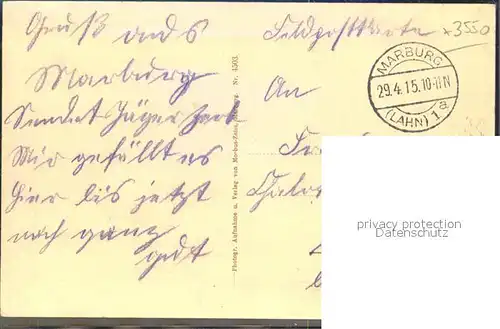 Gruß aus
Marburg
Sendet Jäger
Mir gefällt es
hier bis jetzt
noch ganz
gut
Photogr. Aufnahme u. Verlag von Nr. 4503.
Feldpostkarte
x3550
An
MARBURG
29.4.15.10-11N
(LAHN) 1a
privacy protection
Datenschutz